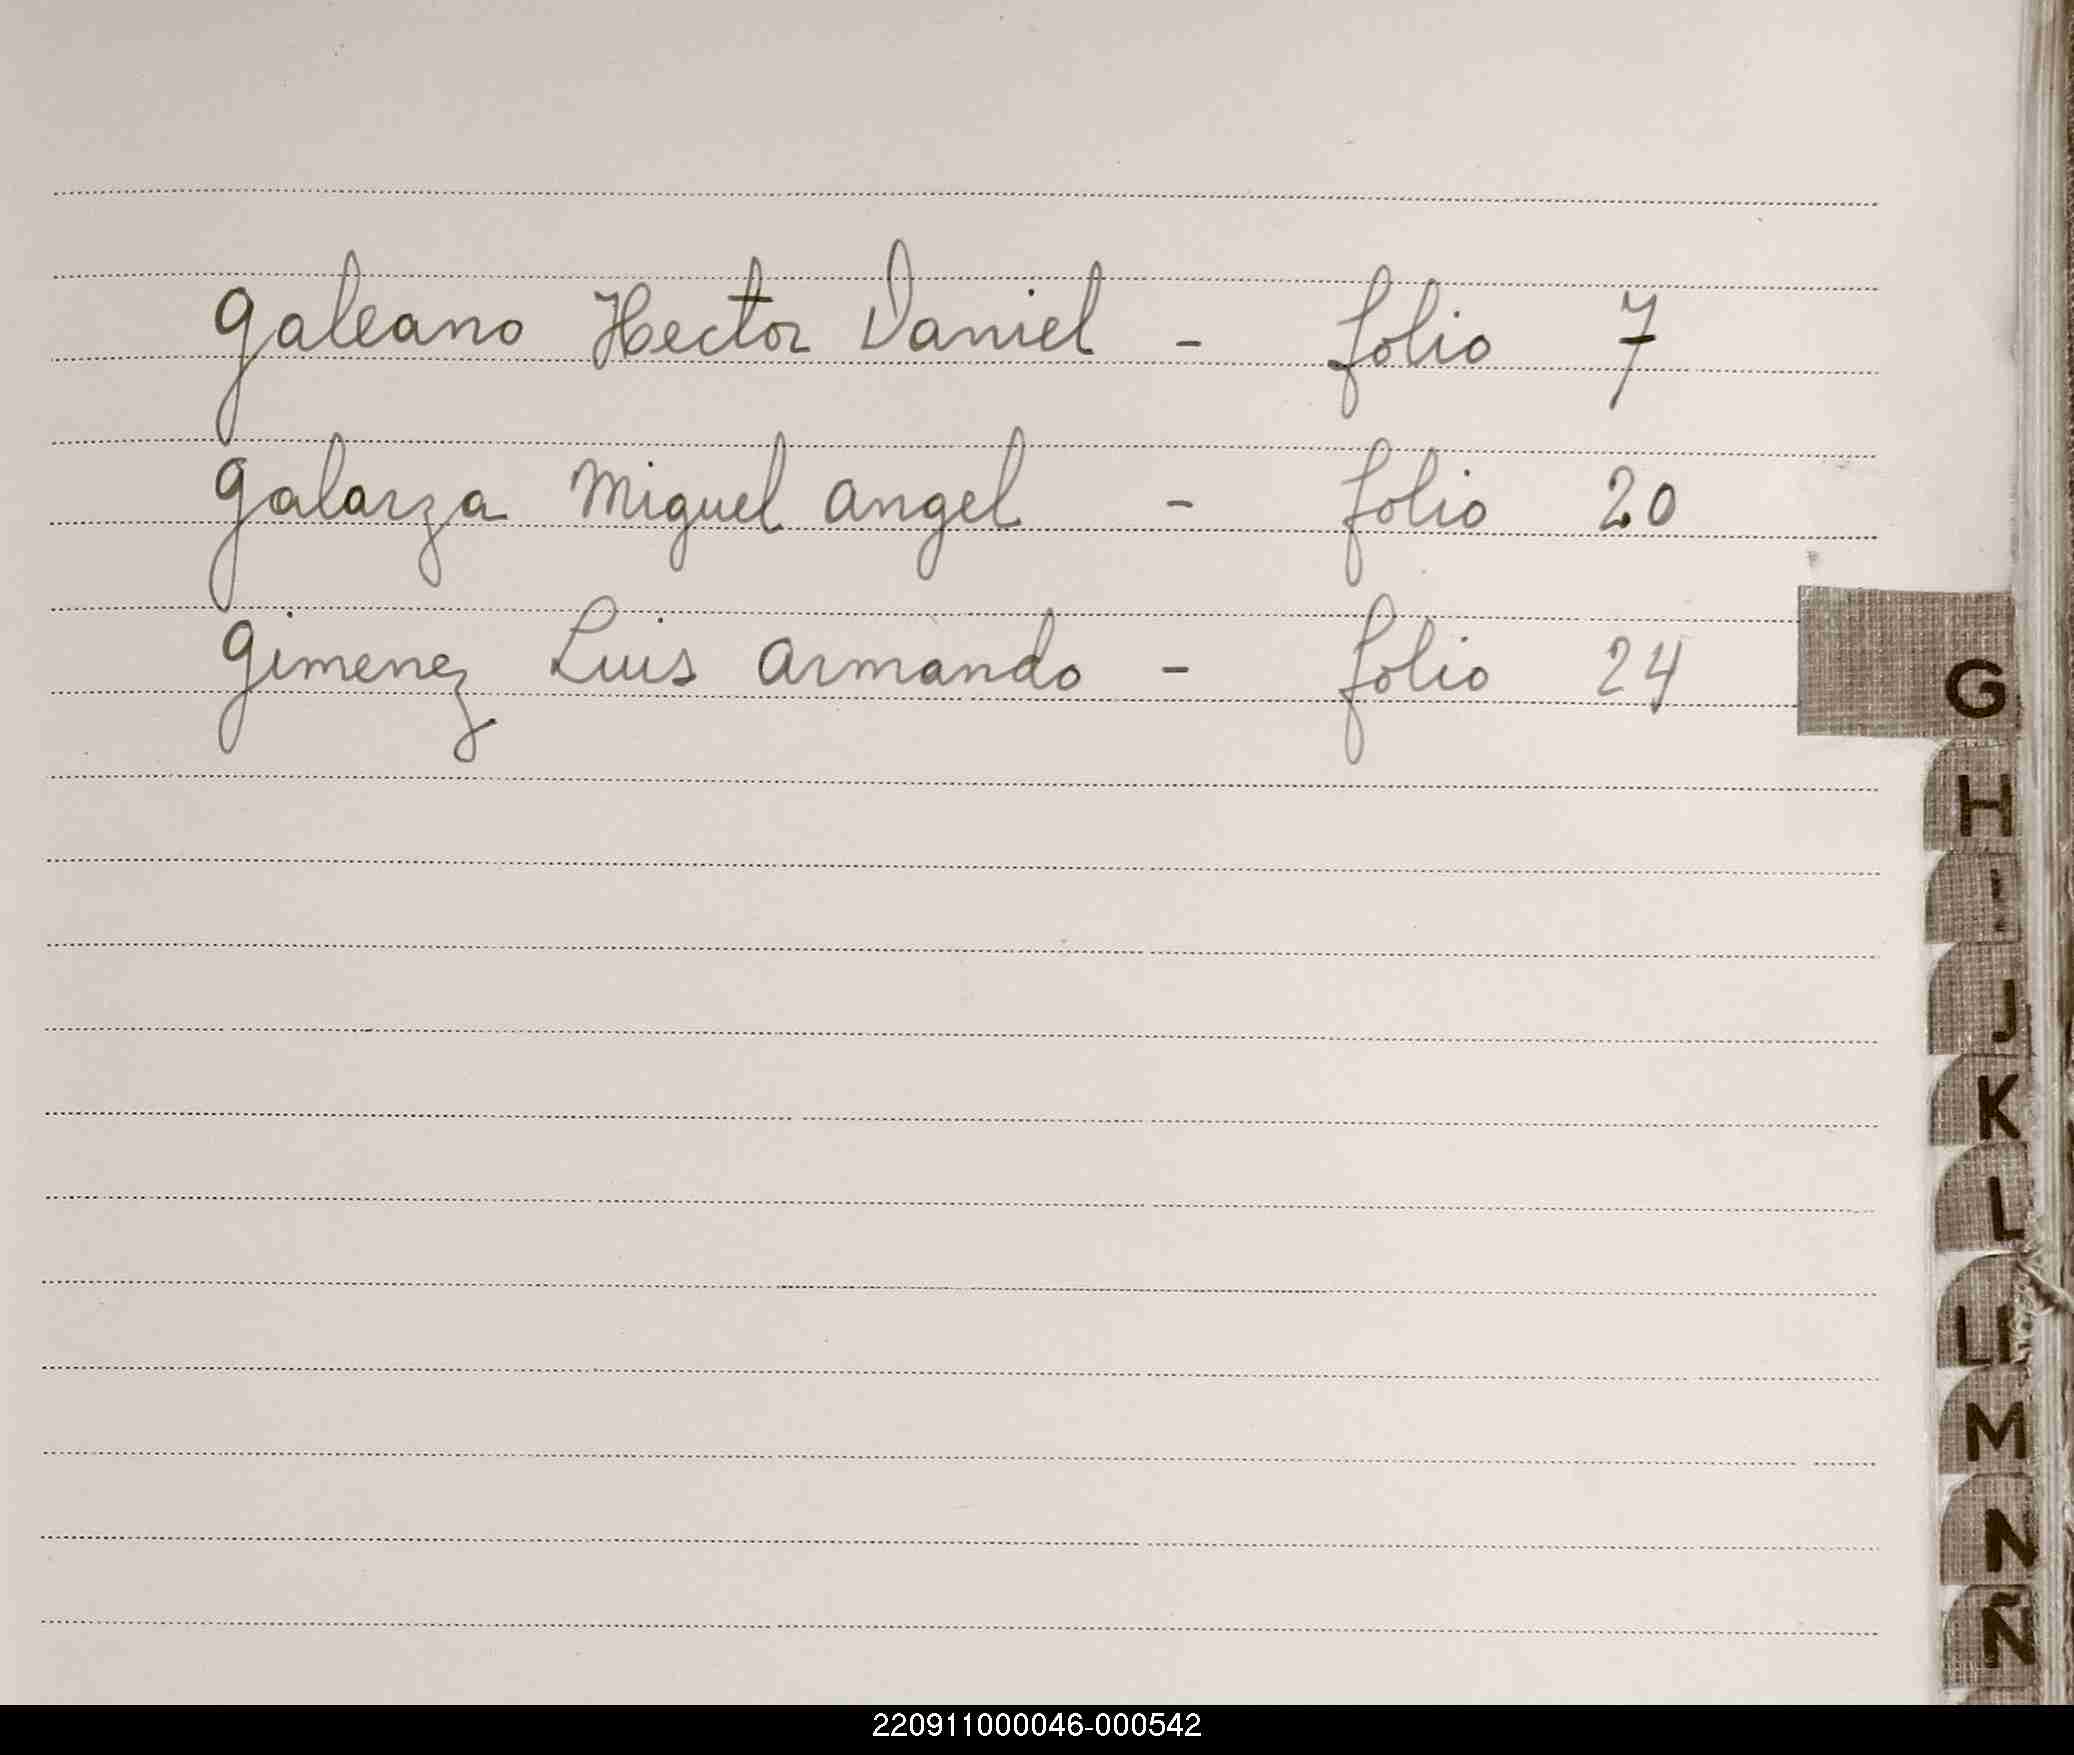 Galeano Hector Daniel - folio 7
Galarza Miguel Angel - folio 20
Gimenez Luis Armando - folio 24
G
H
I
J
K
L
LL
M
N
Ñ
220911000046-000542